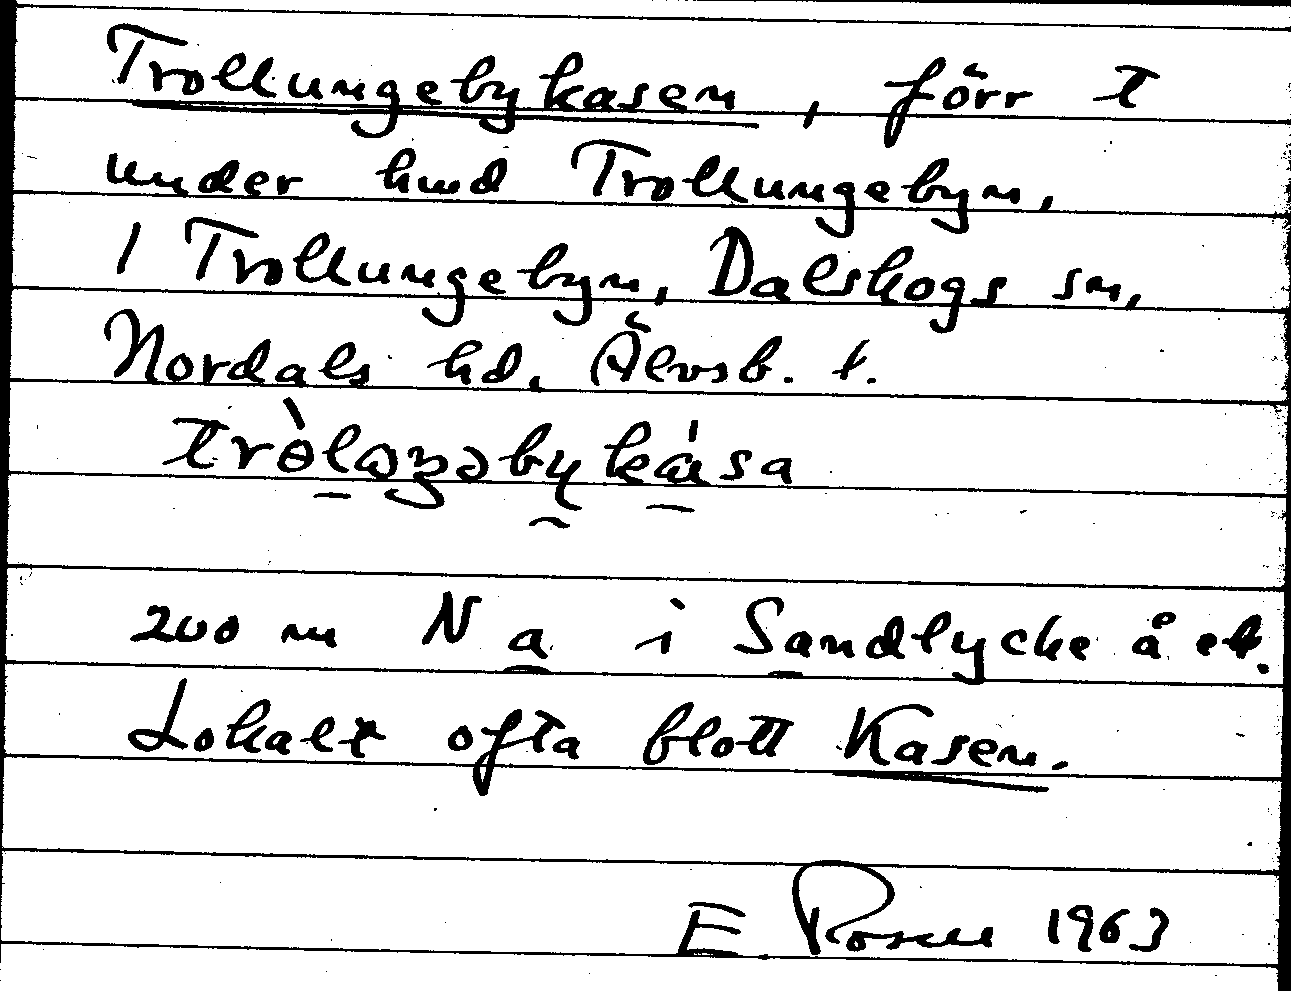 Trollungebykasen, förr t
under hmd Trollungebyn,
1 Trollungebyn, Dalskogs sn,
Nordals hd. Älvsb. l.
200 m N a i Sandlycke å ek.
Lokalt ofta blott Kasen.
E Rosell 1963